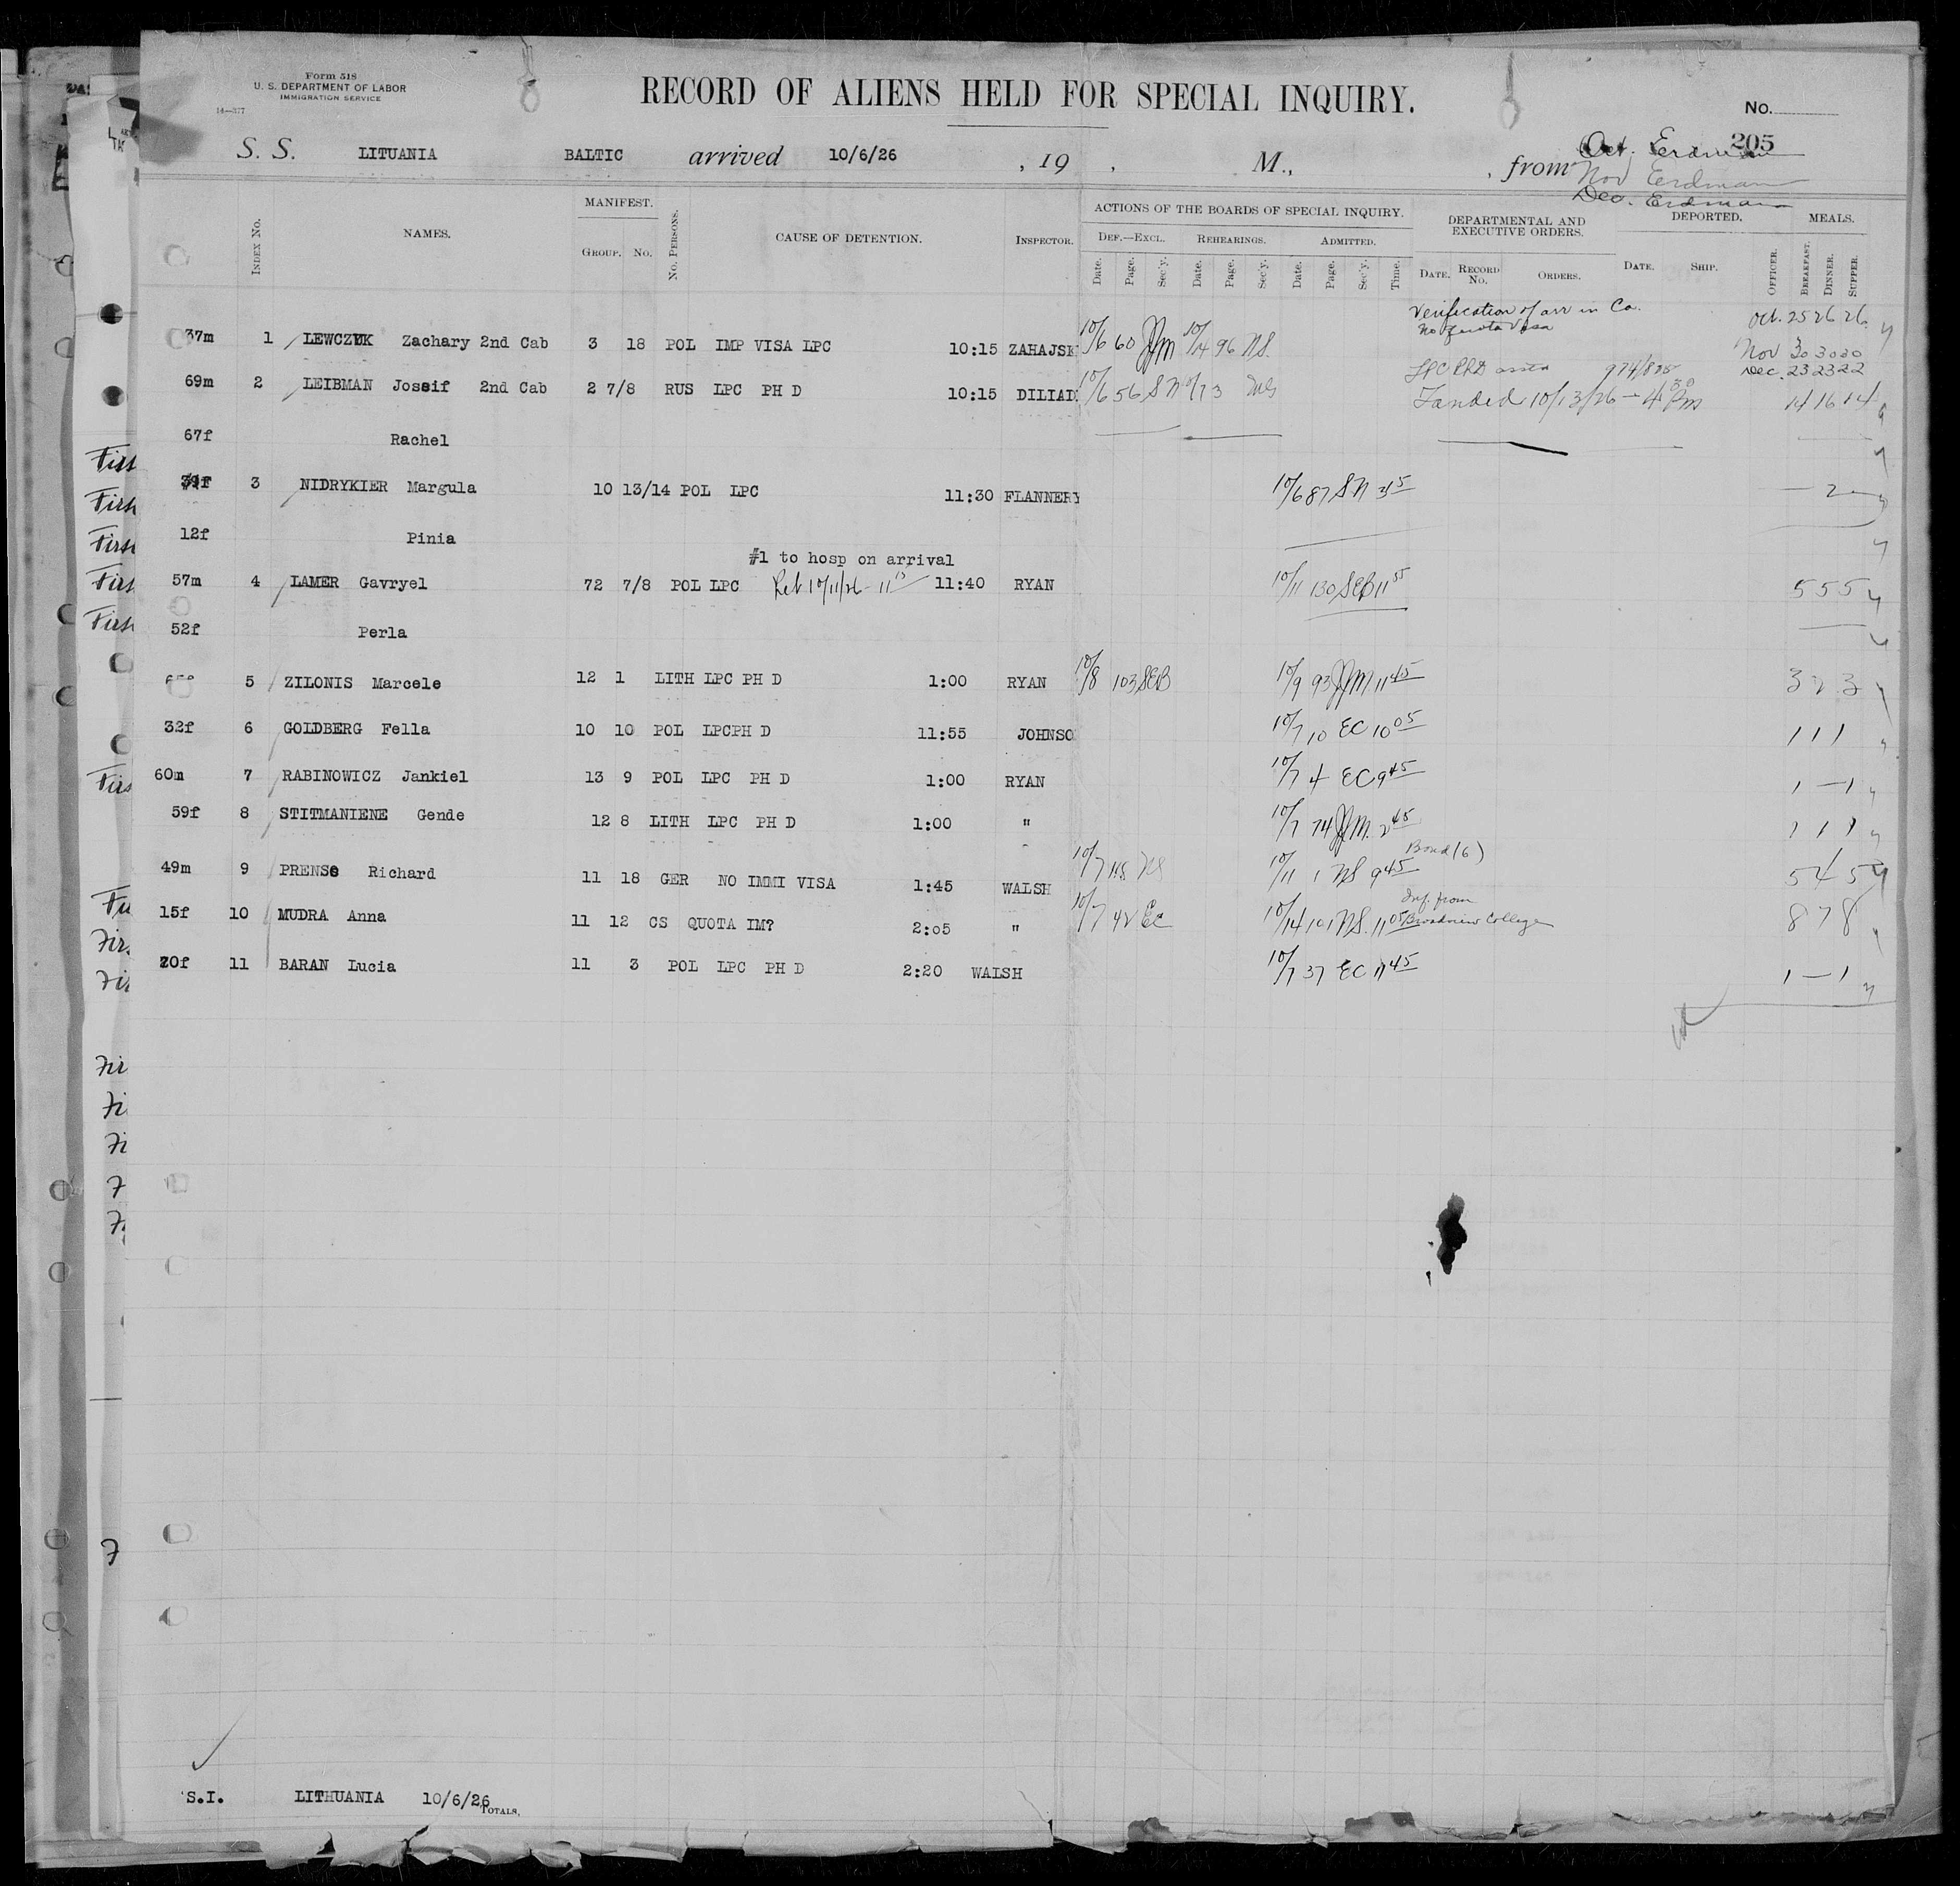 Form 518
U. S. DEPARTMENT OF LABOR
IMMIGRATION SERVICE
14—377
RECORD OF ALIENS HELD FOR SPECIAL INQUIRY.
No.
205
S. S. LITUANIA BALTIC arrived 10/6/26 , 19 , M., , from Oct. Erdman
Nov Erdman
Dec. Erdman
INDEX No. NAMES. MANIFEST. GROUP. No. No. PERSONS. CAUSE OF DETENTION. INSPECTOR. ACTIONS OF THE BOARDS OF SPECIAL INQUIRY. DEF.—EXCL. REHEARINGS. ADMITTED. DEPARTMENTAL AND EXECUTIVE ORDERS. DEPORTED. MEALS.
Date. Page. Sec'y. Date. Page. Sec'y. Date. Page. Sec'y. Time. DATE. RECORD No. ORDERS. DATE. SHIP. OFFICER. BREAKFAST. DINNER. SUPPER.
Verification of arr in Ca. Oct. 25 26 26
No Quota Visa
37m 1 LEWCZUK Zachary 2nd Cab 3 18 POL IMP VISA LPC 10:15 ZAHAJSK 10/6 60 96 NS. Nov 30 30 30
Dec. 23 23 22
69m 2 LEIBMAN Josif 2nd Cab 2 7/8 RUS LPC PH D 10:15 DILIAD 10/6 56 SN Landed 10/13/26 — 4 30 Pm 14 16 14
67f Rachel
3 NIDRYKIER Margula 10 13/14 POL LPC 11:30 FLANNERY 10/6 87 SN — 2 —
12f Pinia
#1 to hosp on arrival
57m 4 LAMER Gavryel 72 7/8 POL LPC 10/11/26 11:40 RYAN 10/11 130 SEB 11 55 5 5 5
52f Perla
5 ZILONIS Marcele 12 1 LITH LPC PH D 1:00 RYAN 10/8 103 SEB 10/9 93 11 45 3 3
32f 6 GOLDBERG Fella 10 10 POL LPCPH D 11:55 JOHNSO 10/7 10 EC 10 05 1 1 1
60m 7 RABINOWICZ Jankiel 13 9 POL LPC PH D 1:00 RYAN 10/7 4 EC 9 45 1 — 1
59f 8 STITMANIENE Gende 12 8 LITH LPC PH D 1:00 " 10/7 74 2 45 1 1 1
Bond (6)
49m 9 PRENSS Richard 11 18 GER NO IMMI VISA 1:45 WALSH 10/7 NS 10/11 1 NS 9 45 5 4 5
Inf. from
15f 10 MUDRA Anna 11 12 CS QUOTA IM? 2:05 " 10/7 42 EC 10/14 101 NS. 11 05 Broadview College 8 7 8
20f 11 BARAN Lucia 11 3 POL LPC PH D 2:20 WALSH 10/7 37 EC 11 45 1 — 1
S.I. LITHUANIA 10/6/26
TOTALS,